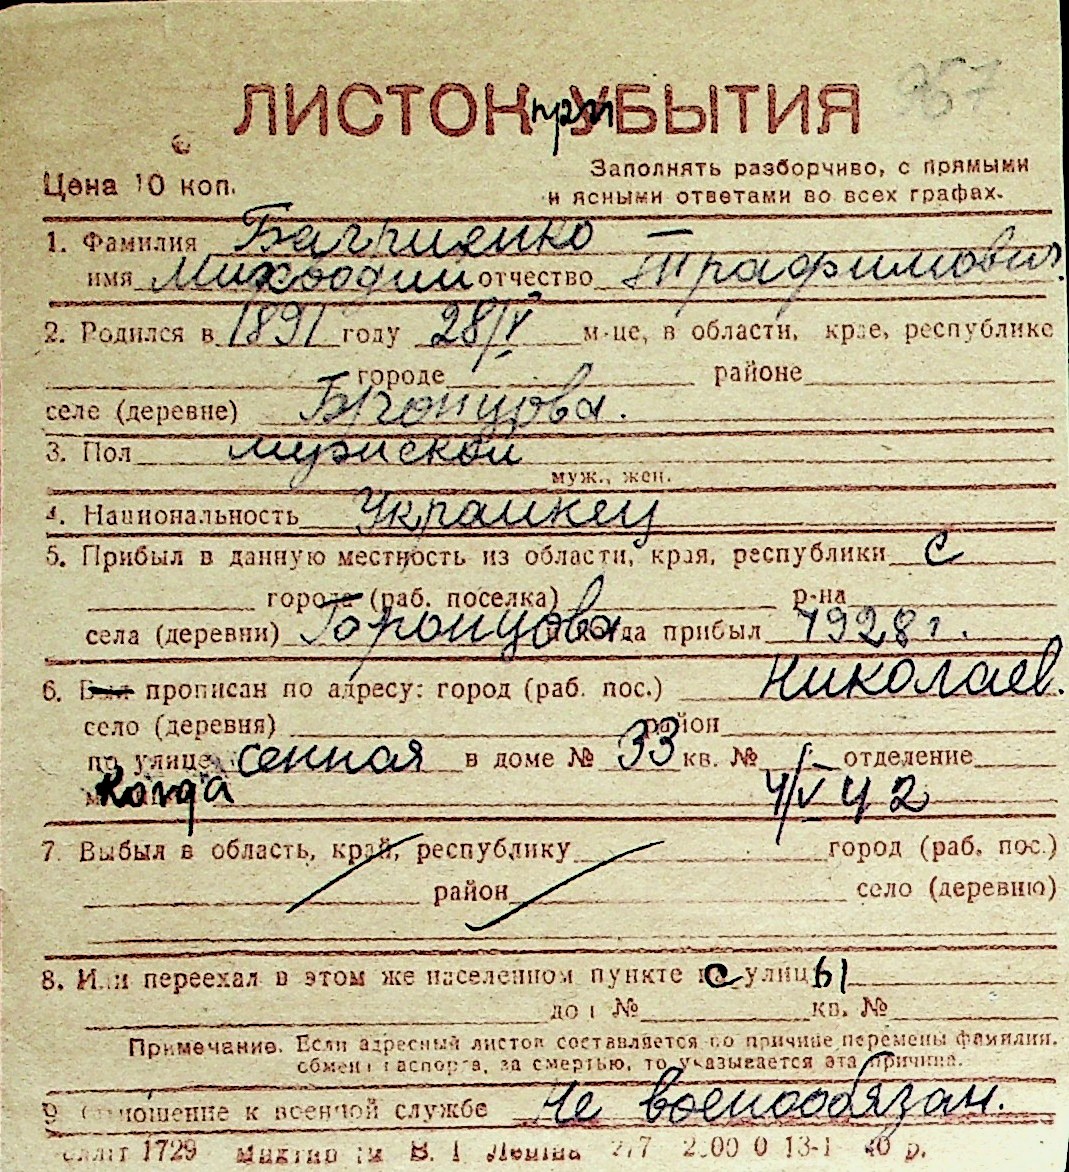 357
ЛИСТОК при УБЫТИЯ
Цена 10 коп.
Заполнять разборчиво, с прямыми
и ясными ответами во всех графах.
1. Фамилия Багриенко —
имя отчество Трафимович
2. Родился в 1891 году 28/V м-це, в области, крае, республике
городе районе
селе (деревне)
3. Пол мужской
муж., жен.
4. Национальность Украинец
5. Прибыл в данную местность из области, края, республики с
города (раб. поселка) р-на
села (деревни) когда прибыл 1928 г.
6. Был прописан по адресу: город (раб. пос.) Николаев.
село (деревня) район
по улице сенная в доме № 33 кв. № отделение
Когда 4/V 42
7. Выбыл в область, край, республику город (раб. пос.)
район село (деревню)
8. Или переехал в этом же населенном пункте с улицы
дом № кв. №
Примечание. Если адресный листок составляется по причине перемены фамилии,
обмена паспорта, за смертью, то указывается эта причина.
9 Отношение к военной службе Не военообязан.
1729 В. І. Леніна 2.00 0 13-1 40 р.